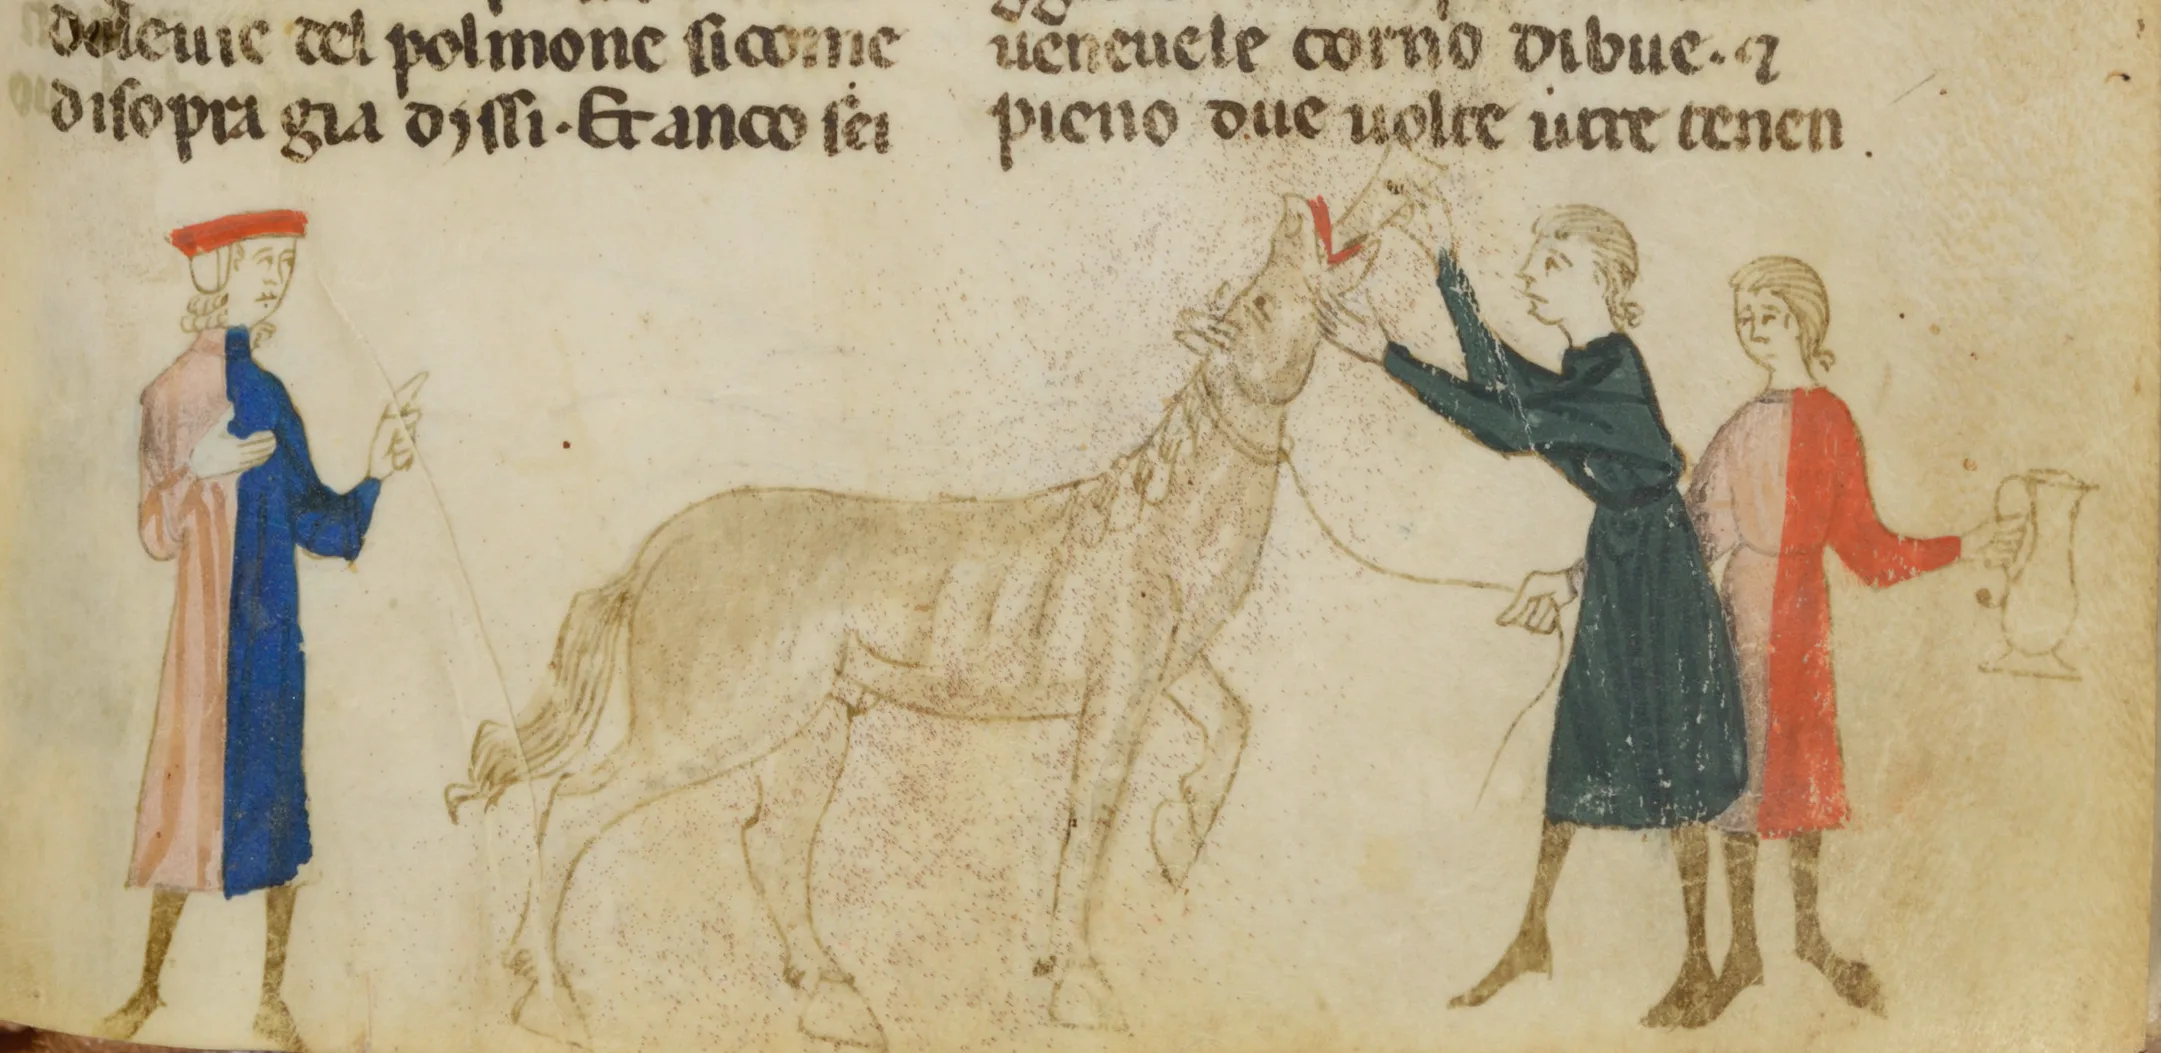 del euie del polmone sicome
disopra gia dyssi. Et anco sei
ueneuele corno dibue. ⁊
pieno due uolte itre tenen